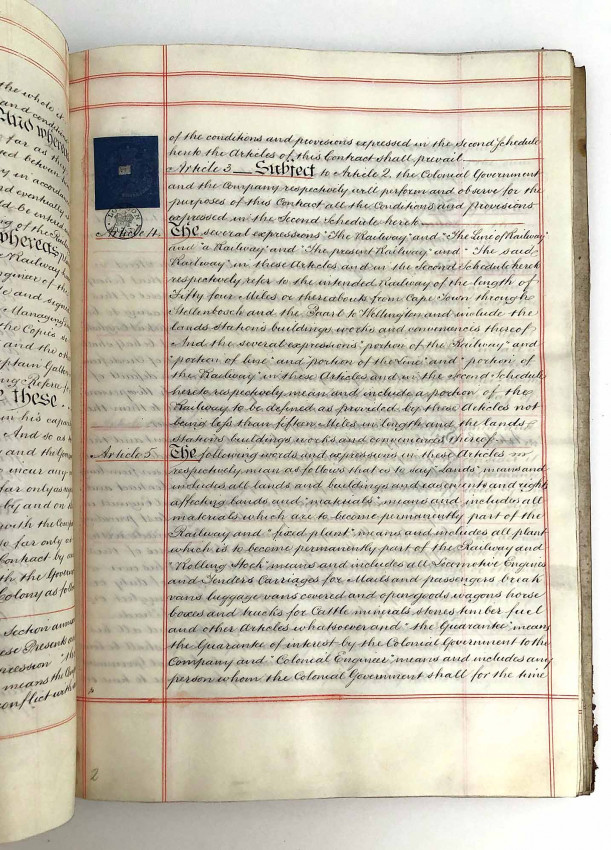 the whole it
and condition
And where
far as the
ted between
y in accorda
nd eventually
ld be entered
ng of the
whereas
e Railway
ngineer of the
and signed
Managing
the Copies
and the oth
ptain Galton
ing Repre
these
in his capac
And so as to
y and the Gov
incur any
far only as
by and on
with the Comp
so far only
Contract by
th the Gover
Colony as follo
Section
ese Presents a
pression "the
means the
conflict with
of the conditions and provisions expressed in the Second Schedule
hereto the Articles of this Contract shall prevail.
Article 3 Subject to Article 2 the Colonial Government
and the Company respectively will perform and observe for the
purposes of this Contract all the Conditions and provisions
expressed in the Second Schedule hereto.
Article 4. The several expressions "The Railway" and "The Line of Railway"
and "a Railway" and "The present Railway" and "The said
Railway" in these Articles and in the Second Schedule hereto
respectively refer to the intended Railway of the length of
Fifty four Miles or thereabouts from Cape Town through
Stellenbosch and the Paarl to Wellington and include the
lands stations buildings works and conveniences thereof
And the several expressions "portion of the Railway" and
"portion of line" and "portion of the Line" and "portion of
the Railway" in these Articles and in the Second Schedule
hereto respectively mean and include a portion of the
Railway to be defined as provided by these Articles not
being less than fifteen Miles in length and the lands
stations buildings works and conveniences thereof.
Article 5. The following words and expressions in these Articles
respectively mean as follows that is to say "Lands" means and
includes all lands and buildings and easements and rights
affecting lands and "materials" means and includes all
materials which are to become permanently part of the
Railway and "fixed plant" means and includes all plant
which is to become permanently part of the Railway and
"Rolling Stock" means and includes all Locomotive Engines
and Tenders Carriages for Mails and passengers break
vans luggage vans covered and open goods wagons horse
boxes and trucks for Cattle minerals stones timber fuel
and other Articles whatsoever and "the Guarantee" means
the Guarantee of interest by the Colonial Government to the
Company and "Colonial Engineer" means and includes any
person whom the Colonial Government shall for the time
2